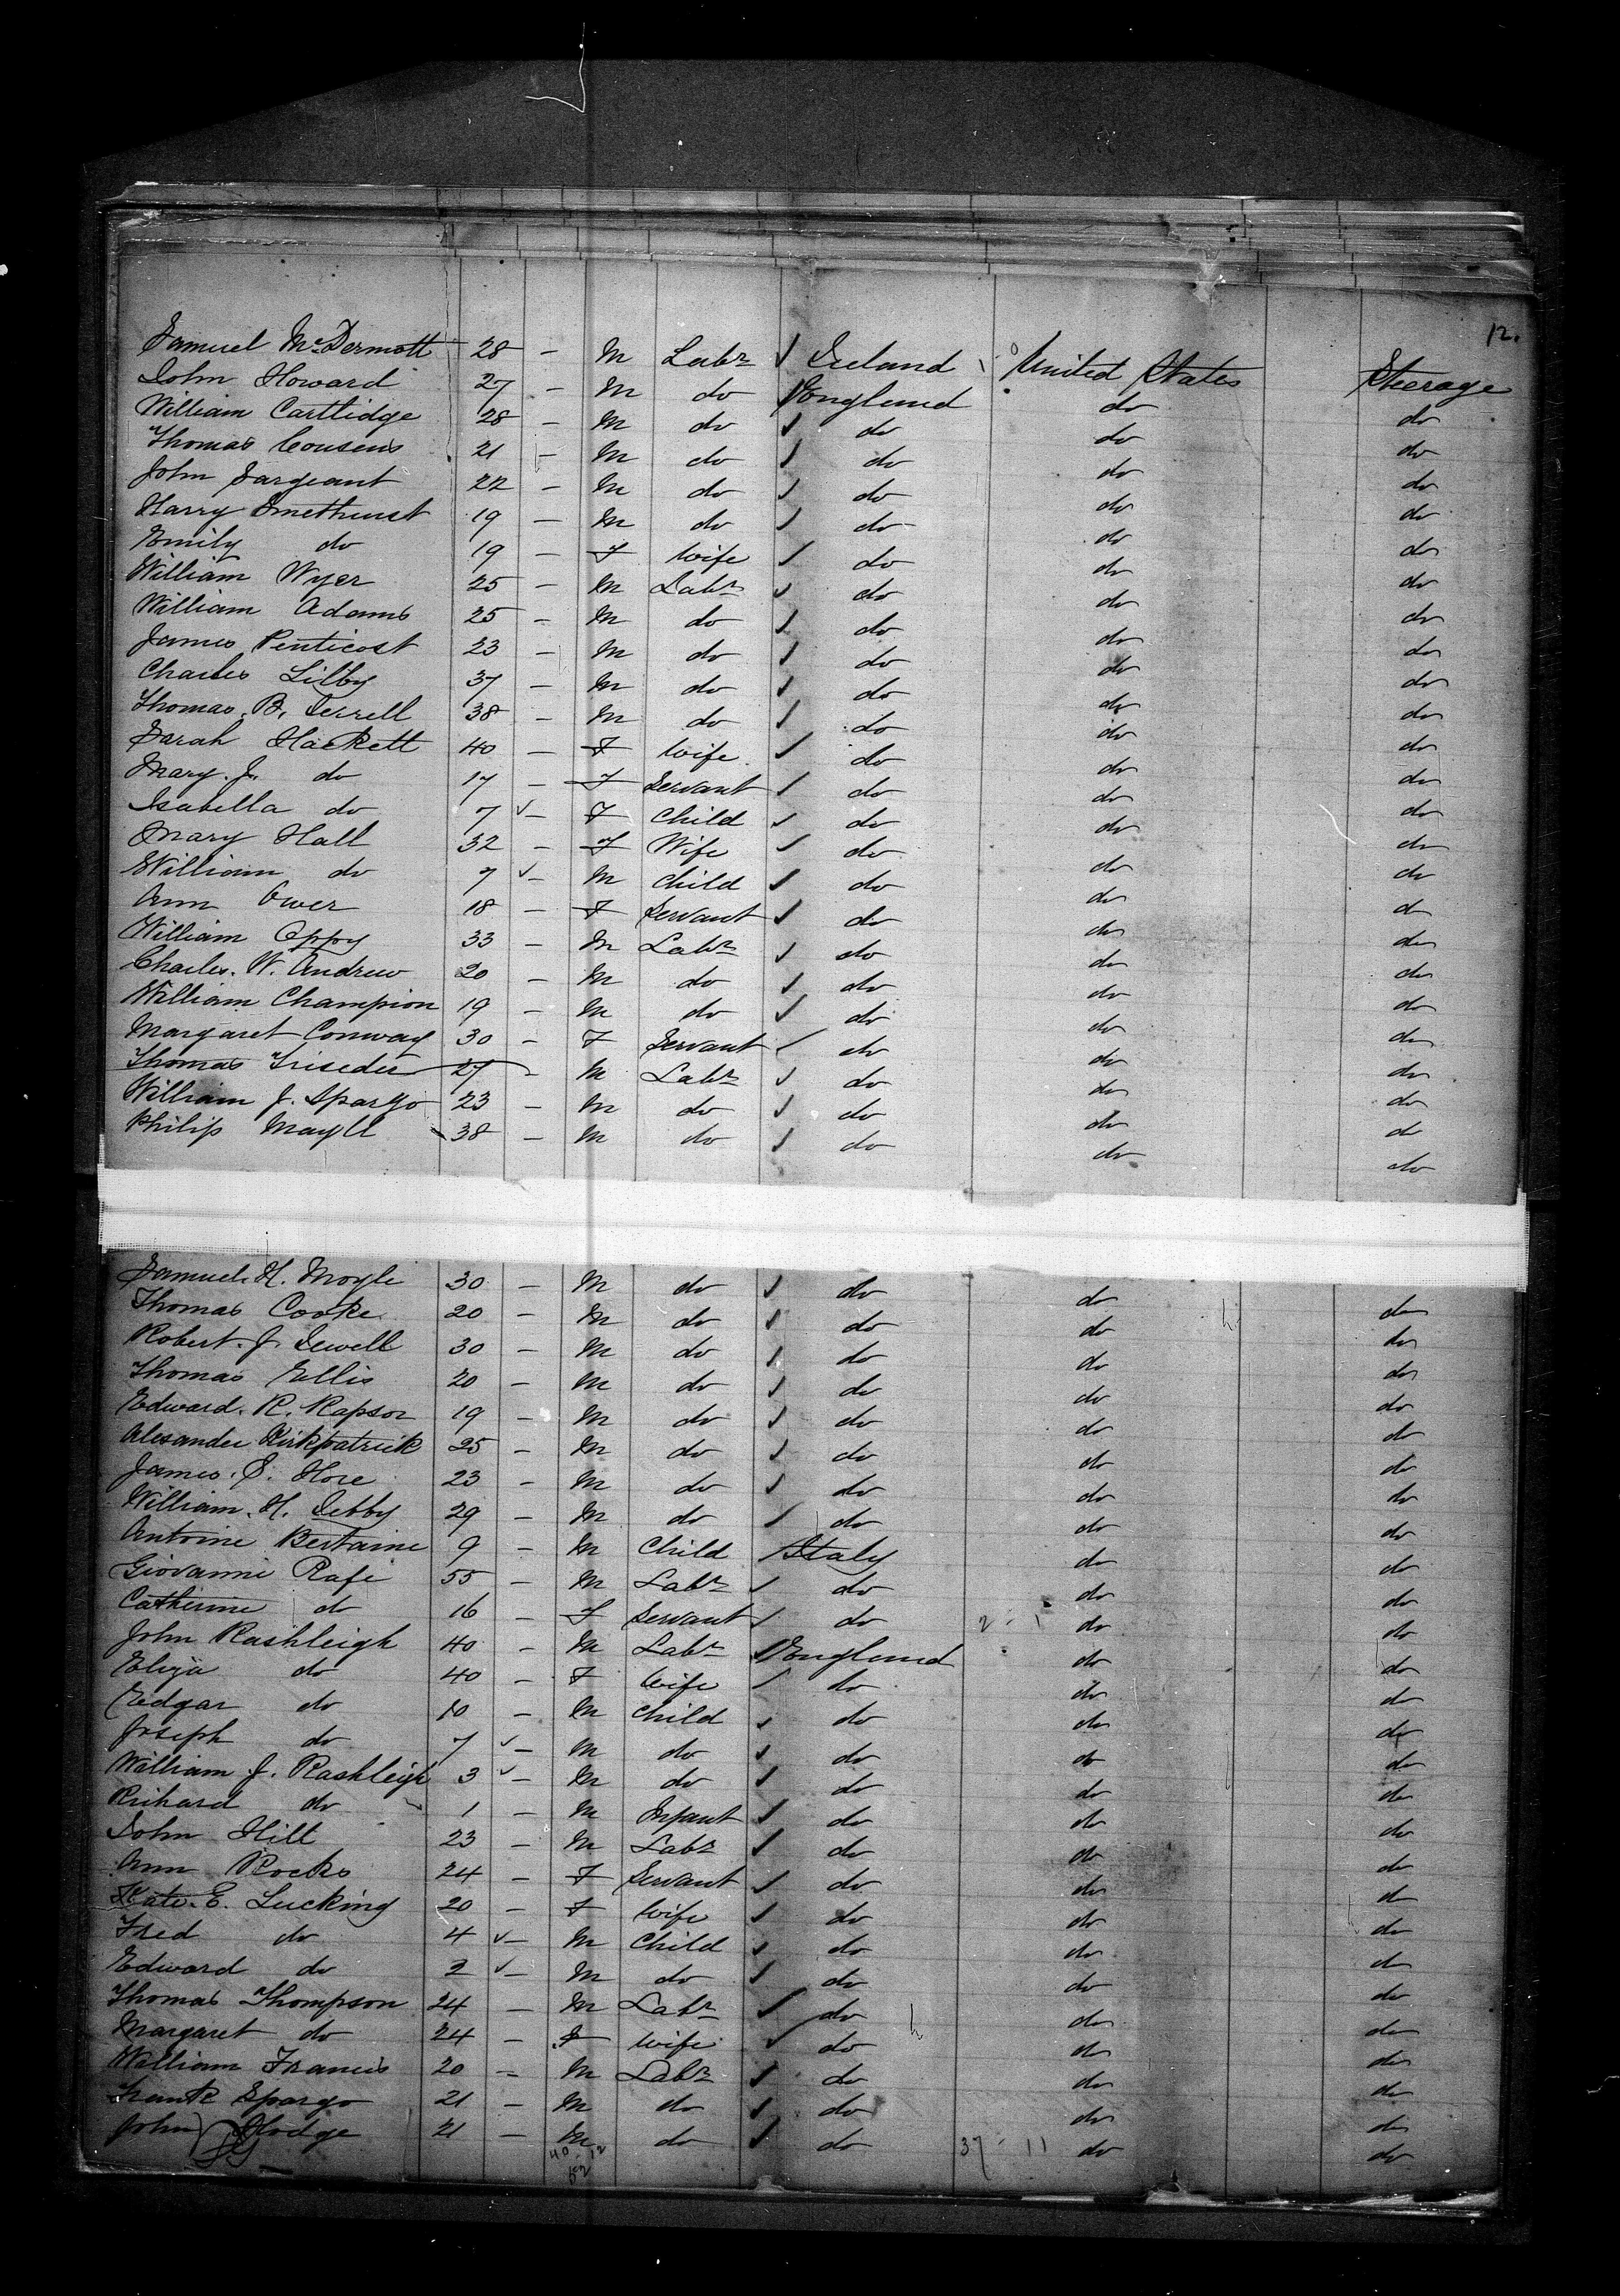 12.
Samuel McDermott 28 - M Labr ✓ Ireland United States Steerage
John Howard 27 - M do ✓ England do do
William Cartlidge 28 - M do ✓ do do do
Thomas Cousens 21 - M do ✓ do do do
John Sargeant 22 - M do ✓ do do do
Harry Smethurst 19 - M do ✓ do do do
Emily do 19 - F Wife ✓ do do do
William Wyer 25 - M Labr ✓ do do do
William Adams 25 - M do ✓ do do do
James Penticost 23 - M do ✓ do do do
Charles Lilby 37 - M do ✓ do do do
Thomas. B. 38 - M do ✓ do do do
Sarah Hackett 40 - F Wife ✓ do do do
Mary. J. do 17 - F Servant ✓ do do do
Isabella do 7 ✓ - F Child ✓ do do do
Mary Hall 32 - F Wife ✓ do do do
William do 7 ✓ - M Child ✓ do do do
Ann Ower 18 - F Servant ✓ do do do
William Oppy 33 - M Labr ✓ do do do
Charles. W. Andrew 20 - M do ✓ do do do
William Champion 19 - M do ✓ do do do
Margaret Conway 30 - F Servant ✓ do do do
Thomas 27 - M Labr ✓ do do do
William J. Spargo 23 - M do ✓ do do do
Philip Mayll 38 - M do ✓ do do do
Samuel. H. Moyle 30 - M do ✓ do do do
Thomas Cooke 20 - M do ✓ do do do
Robert. J. Sewell 30 - M do ✓ do do do
Thomas Ellis 20 - M do ✓ do do do
Edward. R. Rapson 19 - M do ✓ do do do
Alexander Kirkpatrick 25 - M do ✓ do do do
James. S. Hore 23 - M do ✓ do do do
William. H. 29 - M do ✓ do do do
Antoine Bertaine 9 - M Child ✓ Italy do do
Giovanni Rafe 55 - M Labr ✓ do do do
Catherine do 16 - F Servant ✓ do 2 - 1 do do
John Rashleigh 40 - M Labr ✓ England do do
Eliza do 40 - F Wife ✓ do do do
Edgar do 10 - M Child ✓ do do do
Joseph do 7 ✓ - M do ✓ do do do
William. J. Rashleigh 3 ✓ - M do ✓ do do do
Richard do 1 - M Infant ✓ do do do
John Hill 23 - M Labr ✓ do do do
Ann Rocks 24 - F Servant ✓ do do do
Kate. E. Lucking 20 - F Wife ✓ do do do
Fred do 4 ✓ - M Child ✓ do do do
Edward do 2 ✓ - M do ✓ do do do
Thomas Thompson 24 - M Labr ✓ do do do
Margaret do 24 - F Wife ✓ do do do
William Francis 20 - M Labr ✓ do do do
Frank Spargo 21 - M do ✓ do do do
John Hodge 21 - M do ✓ do 37 - 11 do do
40 - 12
52